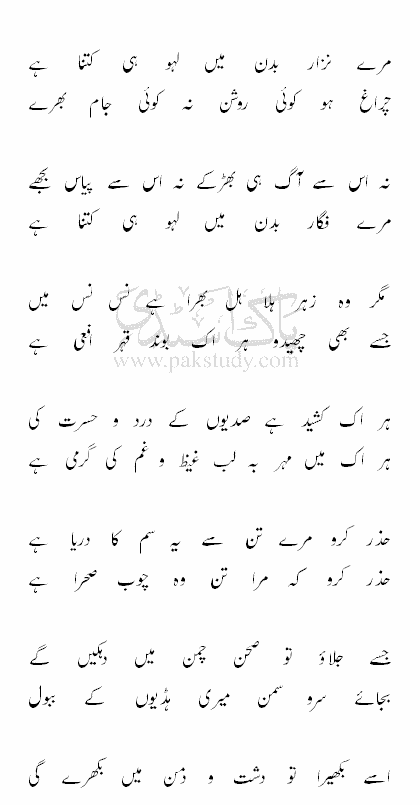 مرے نزار بدن میں لہو ہی کتنا ہے
چراغ ہو کوئی روشن نہ کوئی جام بھرے
نہ اس سے آگ ہی بھڑکے نہ اس سے پیاس بجھے
مرے فگار بدن میں لہو ہی کتنا ہے
مگر وہ زہر ہلاہل بھرا ہے نس نس میں
جسے بھی چھیدو ہر اک بوند قہر افعی ہے
پاک سٹڈی
www.pakstudy.com
ہر اک کشید ہے صدیوں کے درد و حسرت کی
ہر اک میں مہر بہ لب غیظ و غم کی گرمی ہے
حذر کرو مرے تن سے یہ سم کا دریا ہے
حذر کرو کہ مرا تن وہ چوب صحرا ہے
جسے جلاؤ تو صحن چمن میں دہکیں گے
بجائے سرو سمن میری ہڈیوں کے ببول
اسے بکھیرا تو دشت و دمن میں بکھرے گی